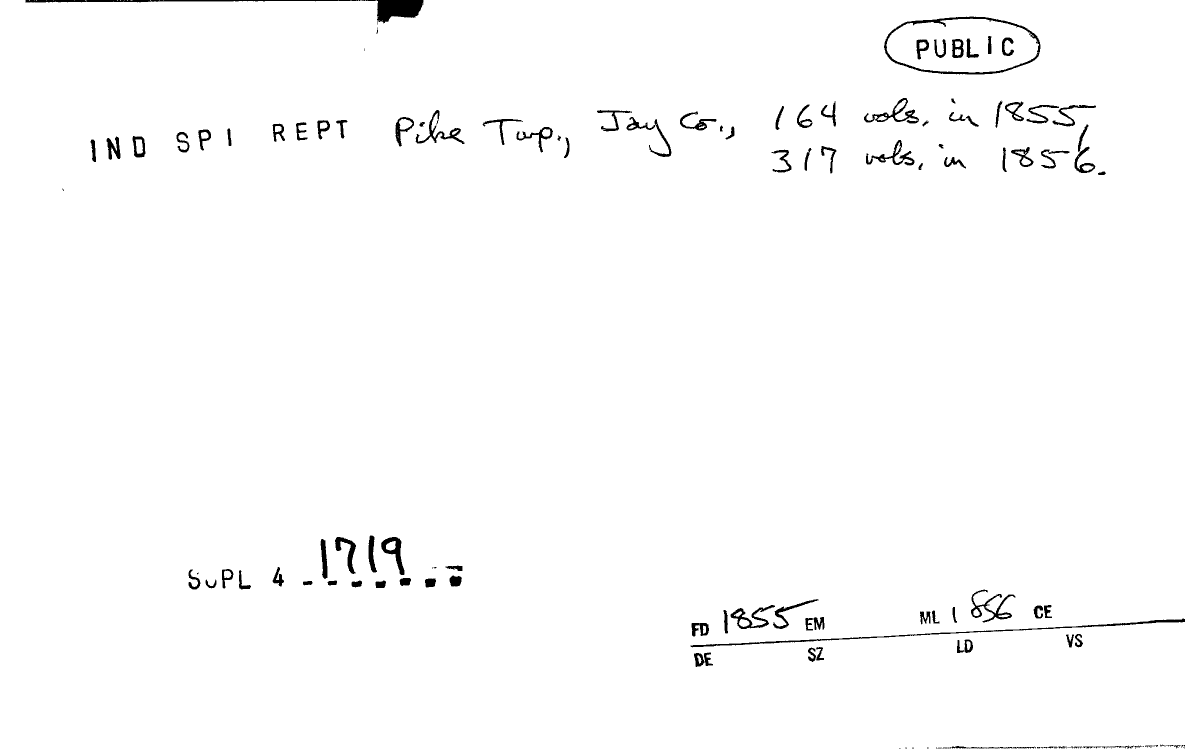 PUBLIC
IND SPI REPT Pike Twp., Jay Co., 164 vols. in 1855,
317 vols. in 1856.
SUPL 4 1719
FD 1855 EM ML 1856 CE
DE SZ LD VS